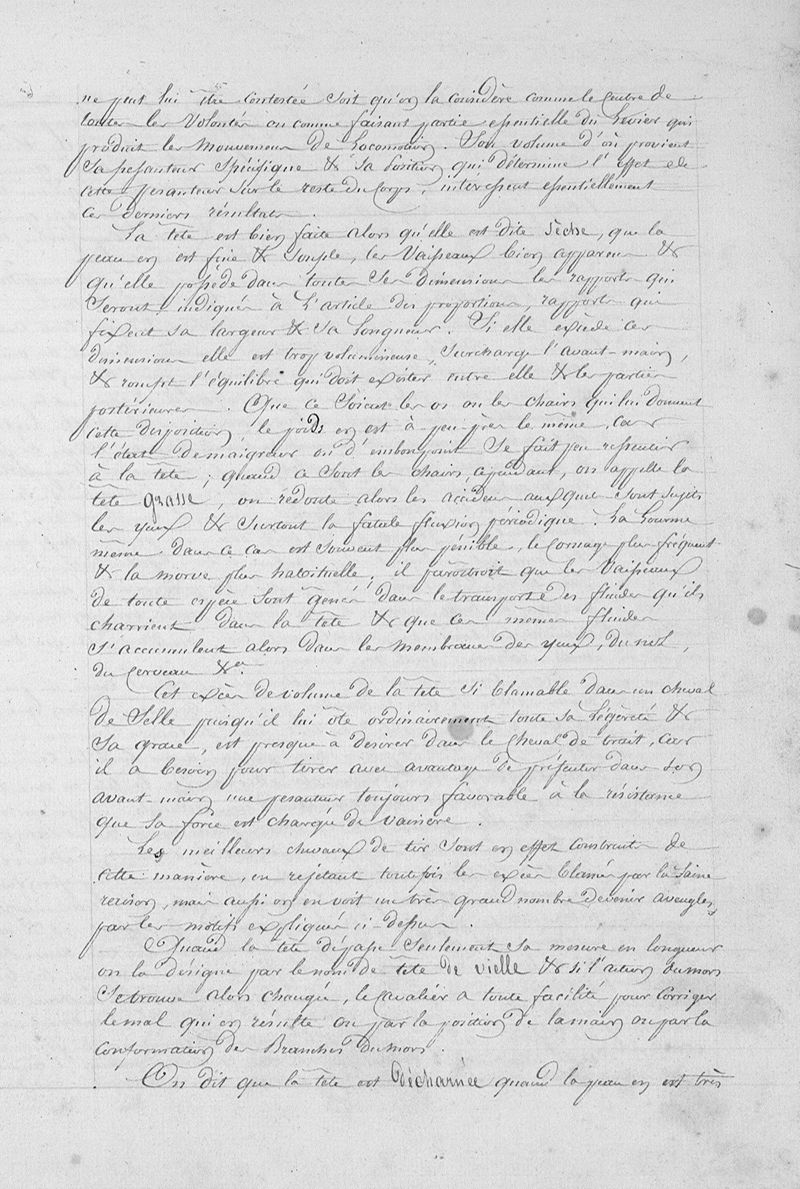 ne peut lui être contestée soit qu'on la considère comme le Centre de
toutes les Volontés ou comme faisant partie essentielle du Levier qui
produit les Mouvemens de Locomotion. Son volume d'où provient
Sa pesanteur Spécifique & Sa position qui détermine l'effet de
cette pesanteur sur le reste du Corps, intéressent essentiellement
ces derniers résultats.
La tête est bien faite alors qu'elle est dite sèche, que la
peau en est fine & Souple, les Vaisseaux bien apparens &
qu'elle possède dans toutes Ses dimensions les rapports qui
Seront indiqués à L'article des proportions, rapports qui
fixent sa largeur & Sa Longueur. Si elle excède ces
dimensions elle est trop volumineuse, Surcharge l'avant-main,
& rompt l'équilibre qui doit exister entre elle & les parties
postérieures. Que ce Soient les os ou les chairs qui lui donnent
cette disposition, le poids en est à-peu-près le même, car
l'état de maigreur ou d'embonpoint Se fait peu ressentir
à la tête; quand ce Sont les chairs, cependant, on appelle la
tête grasse, on redoute alors les accidens auxquels sont sujets
les yeux & Surtout la fatale fluxion périodique. La Gourme
même dans ce cas est Souvent plus pénible, le Cornage plus fréquent
& la morve plus habituelle; il paroitroit que les Vaisseaux
de toute espèce Sont genés dans le transport des fluides qu'ils
charrient dans la tête & que ces mêmes fluides
S'accumulent alors dans les membranes des yeux, du nez,
du Cerveau &a.
Cet excès de volume de la tête si blamable dans un cheval
de Selle puisqu'il lui ôte ordinairement toute sa Légèreté &
Sa grace, est presque à desirer dans le Cheval de trait, car
il a besoin pour tirer avec avantage de présenter dans Son
avant-main une pesanteur toujours favorable à la résistance
que Sa force est chargée de vaincre.
Les meilleurs chevaux de tir sont en effet construits de
cette manière, en rejetant toutefois les excès blamés par la Saine
raison, mais aussi on en voit un très grand nombre devenir aveugles,
par les motifs expliqués ci-dessus.
Quand la tête dépasse Seulement Sa mesure en longueur
on la désigne par le nom de tête de vielle & si l'action du mors
Se trouve alors changée, le Cavalier a toute facilité pour Corriger
le mal qui en résulte ou par la position de la main ou par la
Conformation des Branches du mors.
On dit que la tête est Décharnée quand la peau en est très